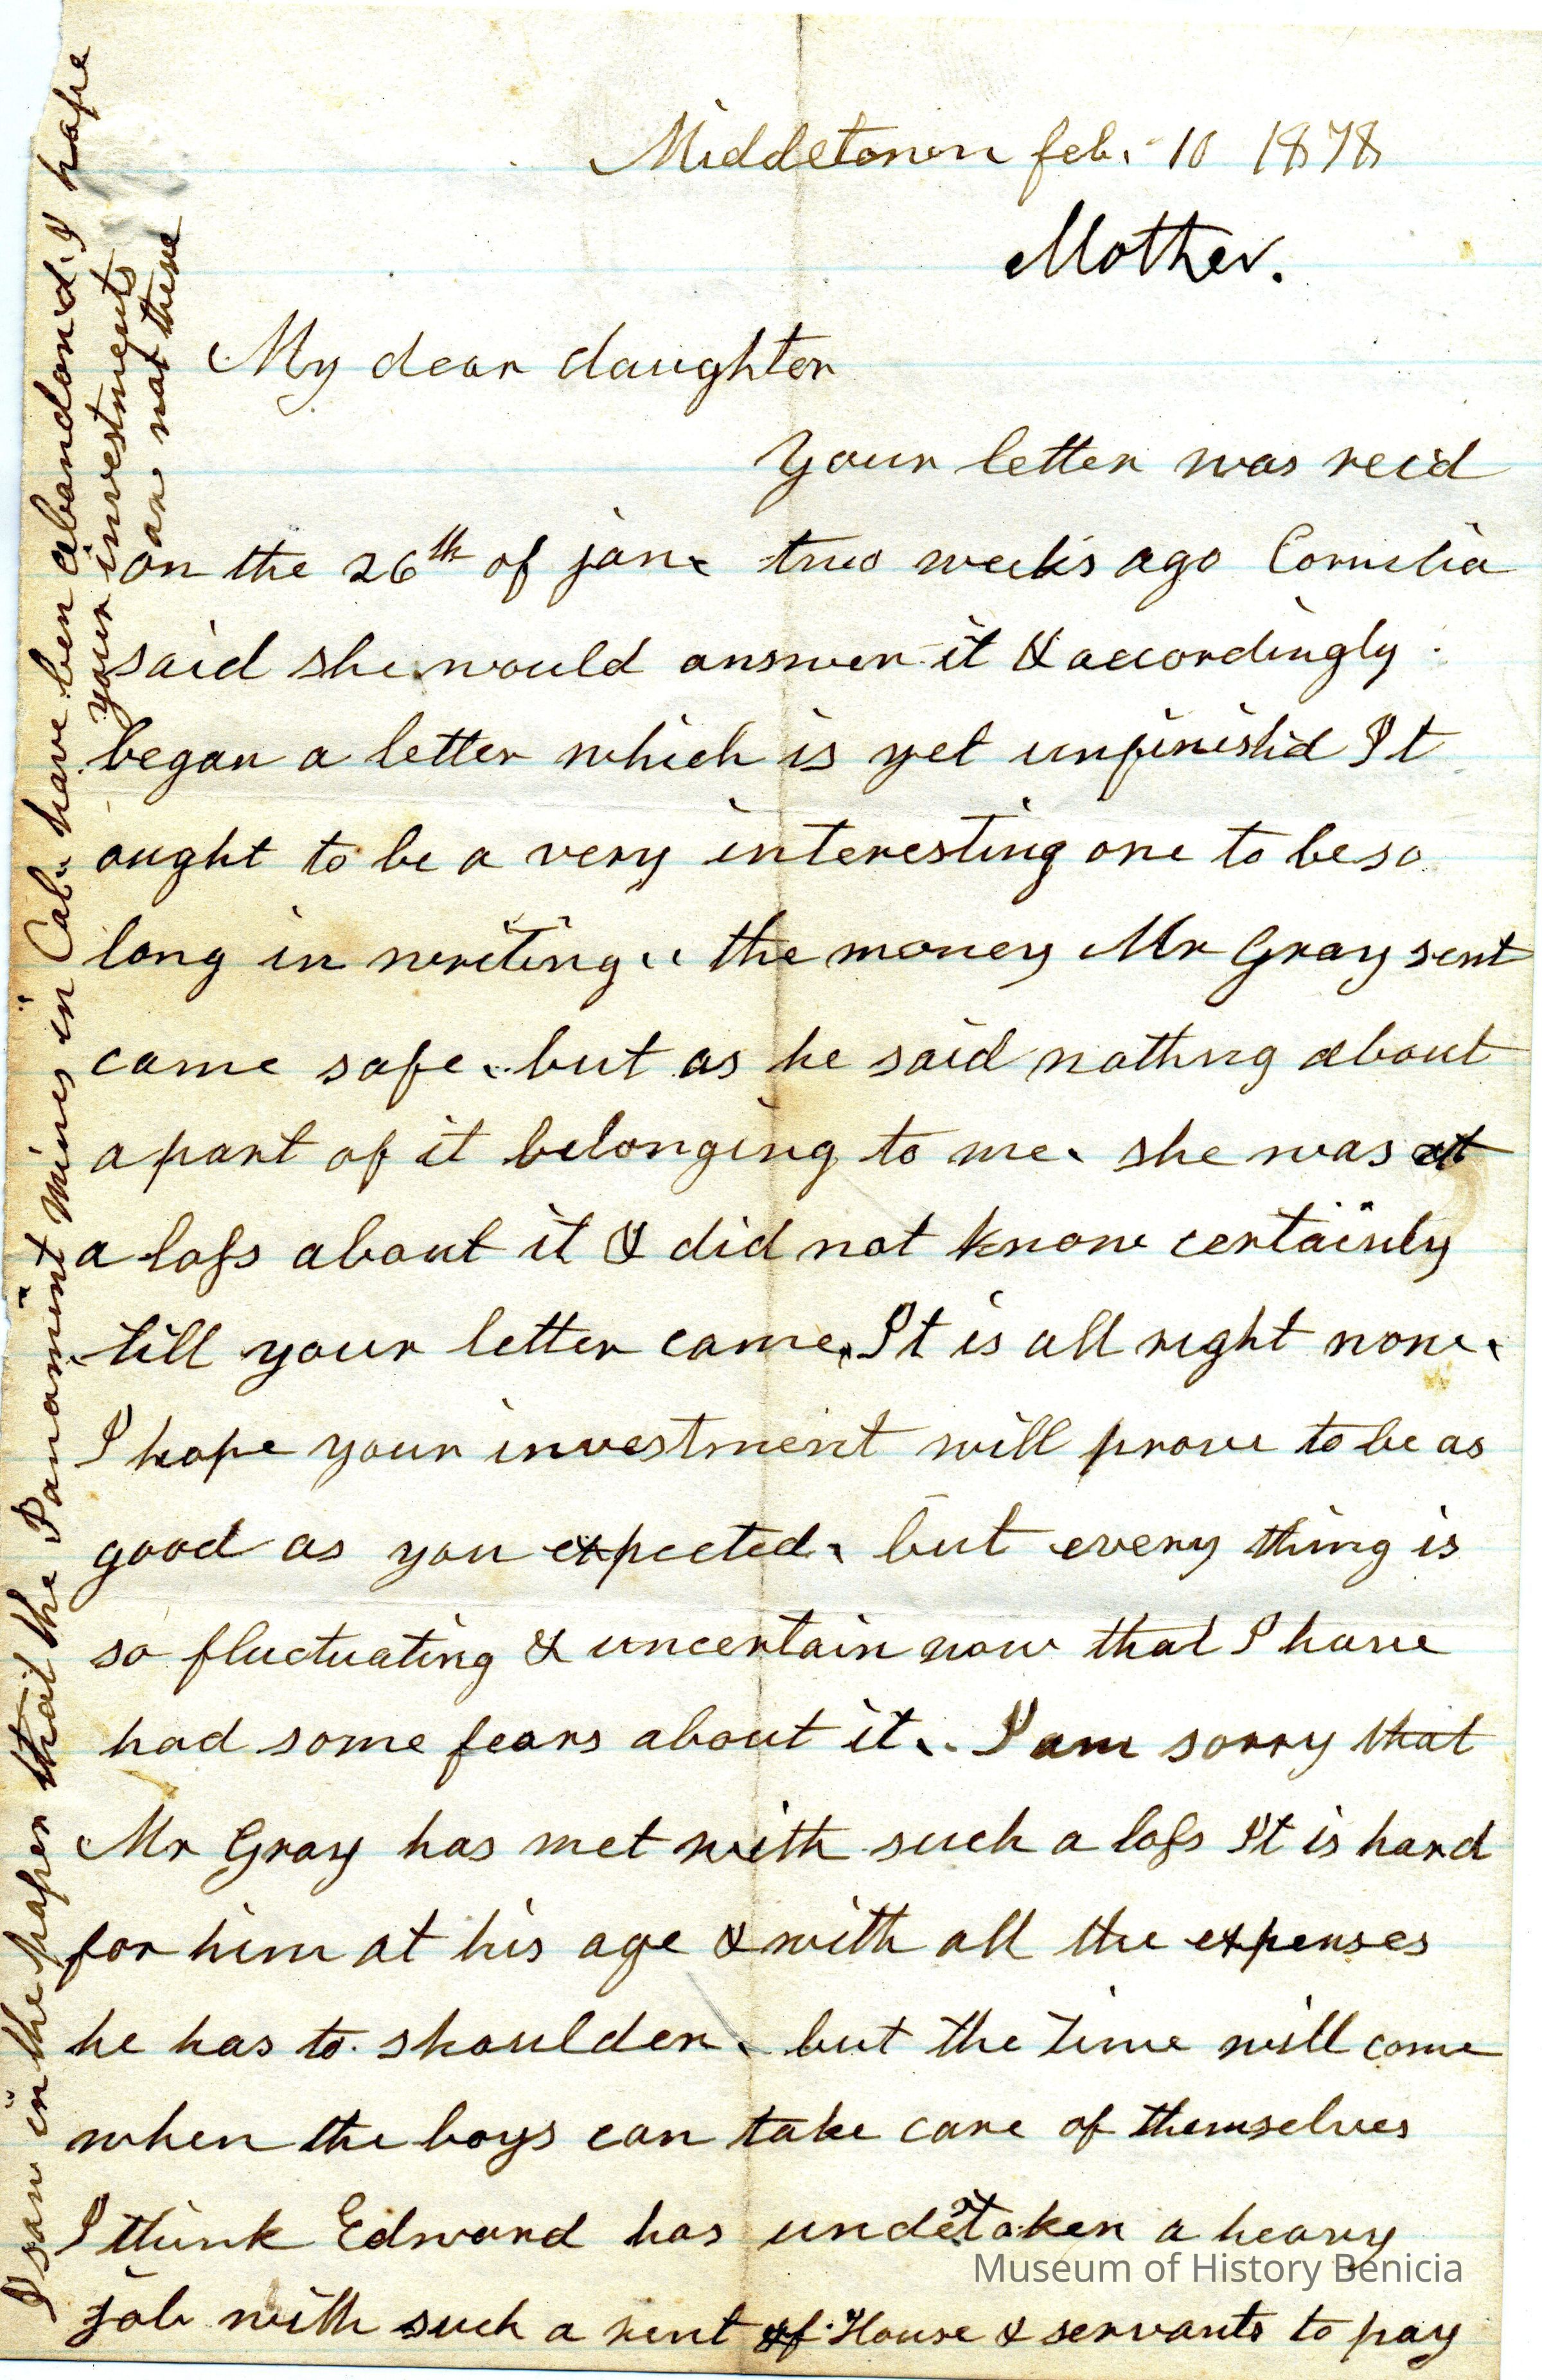 Middletown feb. 10 1878
Mother.
My dear daughter
Your letter was recd
on the 26th of jan. two weeks ago Cornelia
said she would answer it & accordingly
began a letter which is yet unfinishd It
ought to be a very interesting one to be so
long in writing.. the money Mr Gray sent
came safe. but as he said nothng about
a part of it belonging to me. she was at
a loss about it & did not know certainly
till your letter came. It is all right now.
I hope your investment will prove to be as
good as you expected. but every thing is
so fluctuating & uncertain now that I have
had some fears about it.. I am sorry that
Mr Gray has met with such a loss It is hard
for him at his age & with all the expenses
he has to shoulder. but the time will come
when the boys can take care of themselves
I think Edward has undertaken a heavy
job with such a rent of House & servants to pay
I saw in the paper that the Panamint Mines in Cal. have ben abandond. I hope
your investments
are not there
Museum of History Benicia